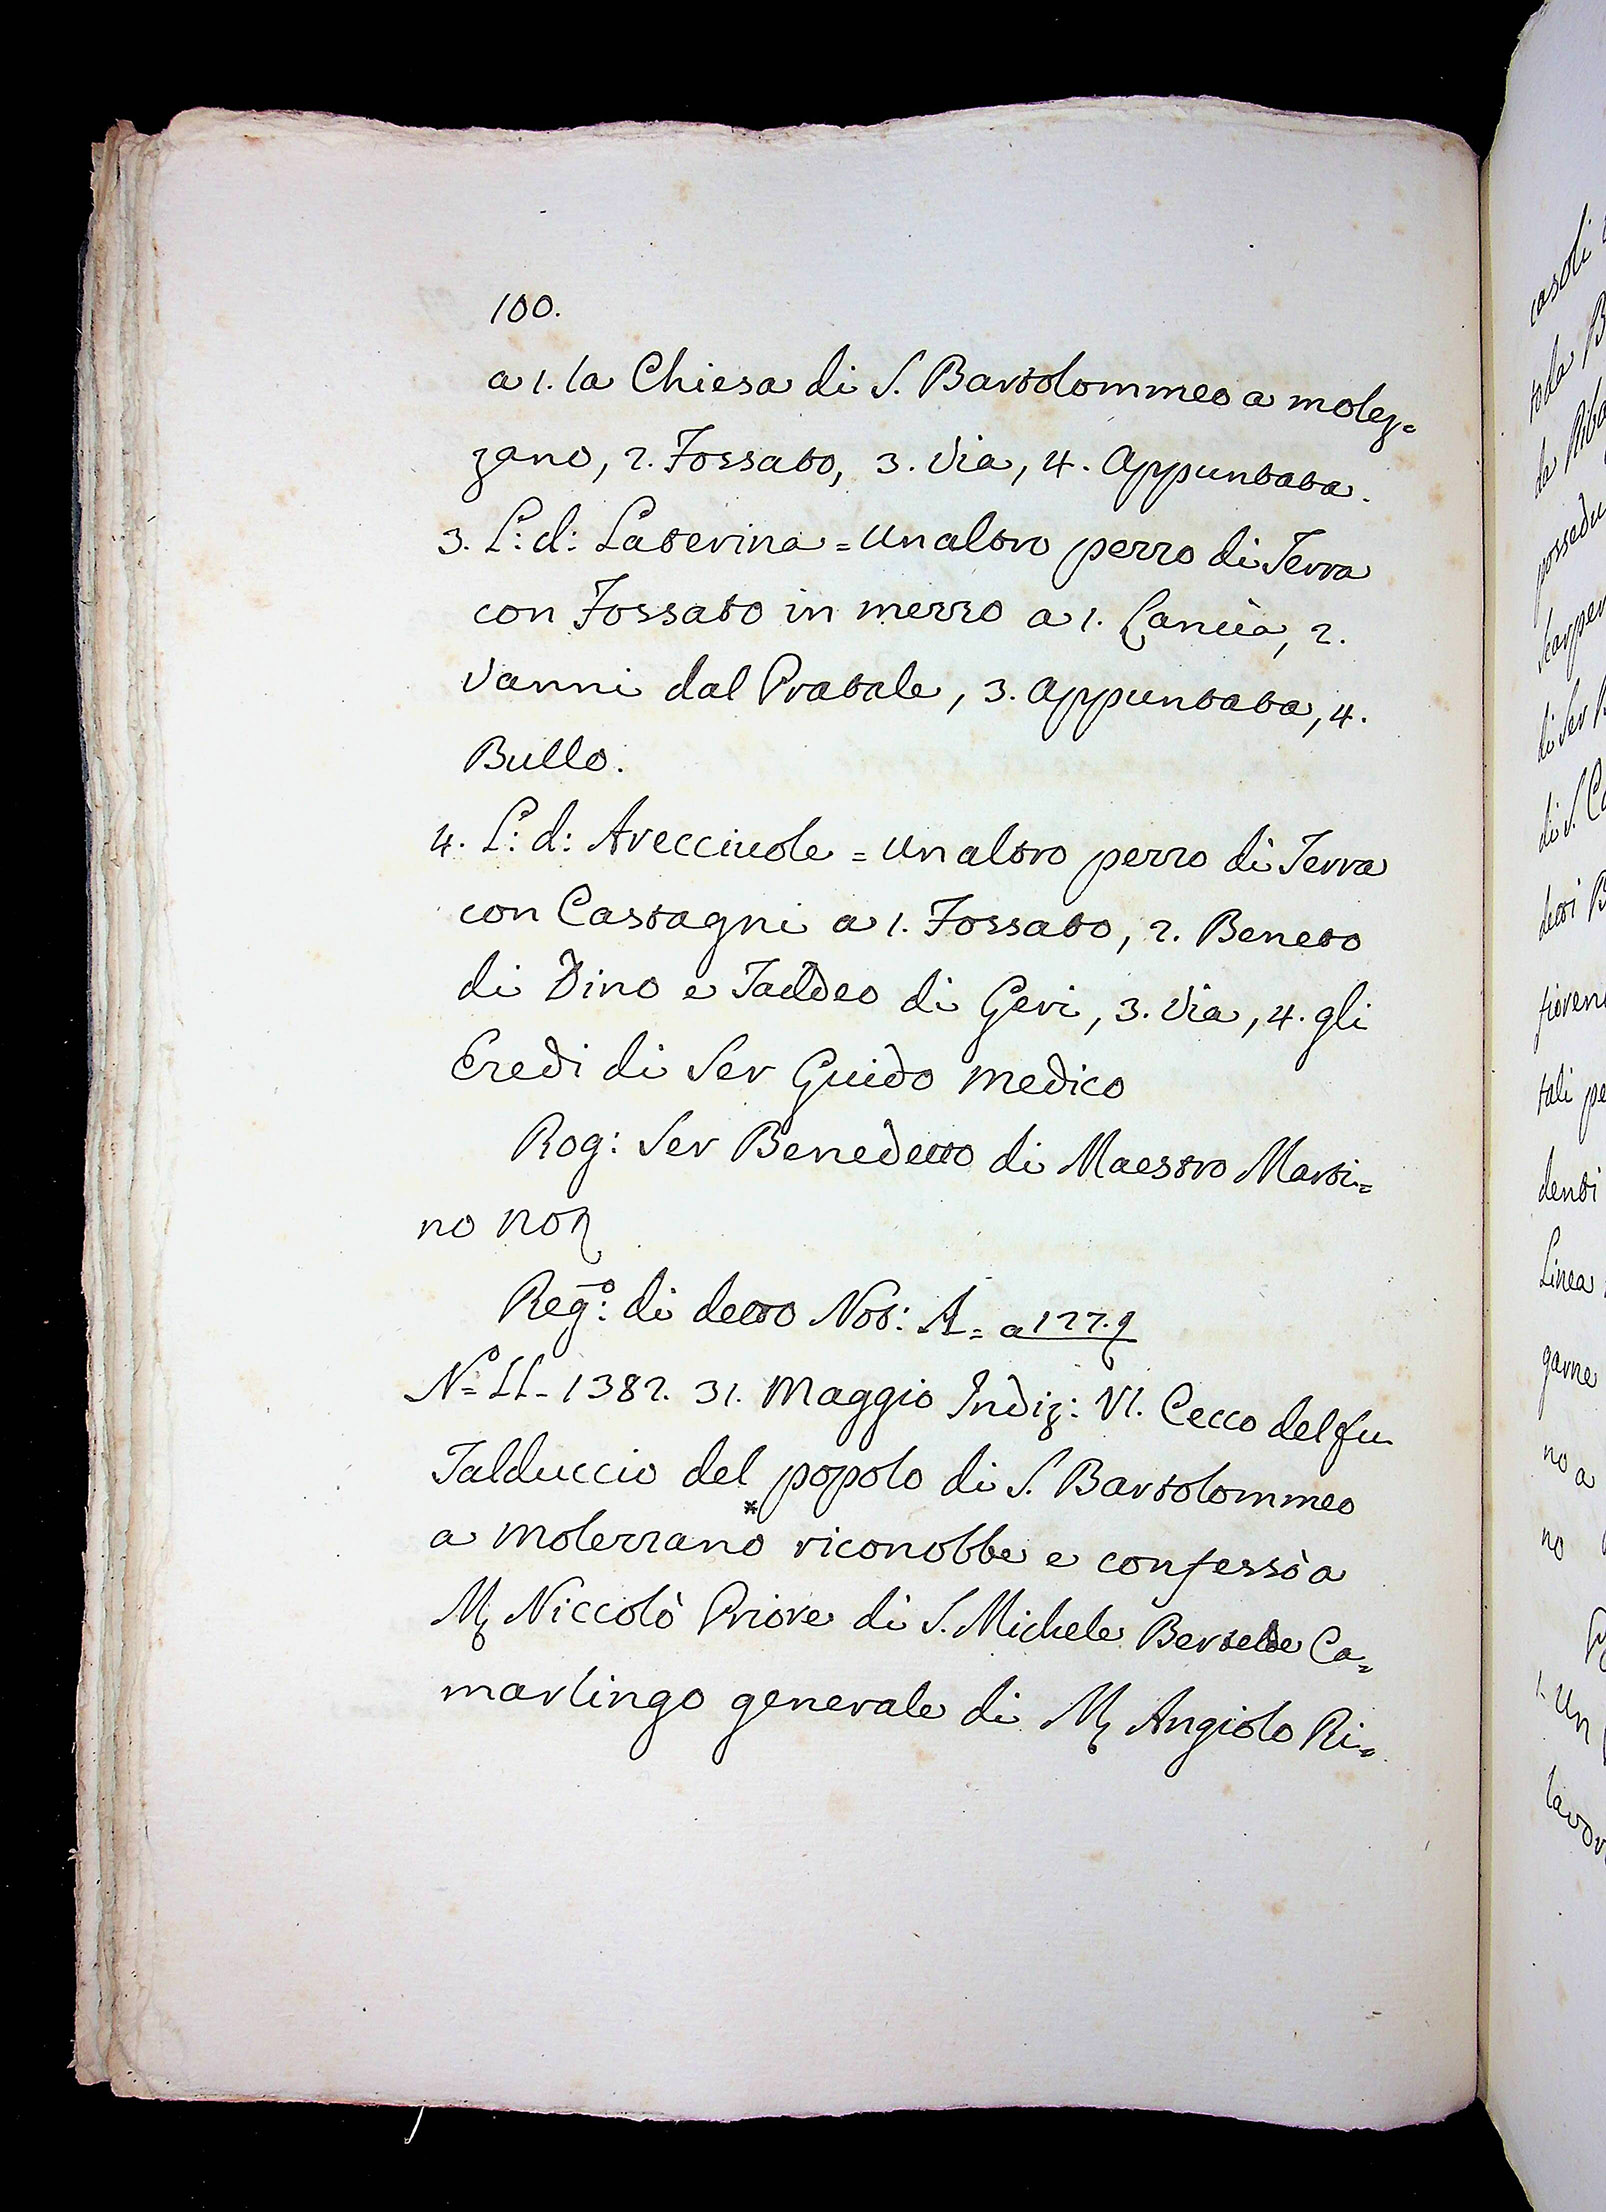 100.
a 1. la Chiesa di S. Bartolommeo a molez=
zano, 2. Fossato, 3. Via, 4. Appuntata.
3. L: d: Laterina = un altro pezzo di Terra
con Fossato in mezzo a 1. Cancia, 2.
Vanni dal Pratale, 3. Appuntata, 4.
Bullo.
4. L: d: Arecciuole = un altro pezzo di Terra
con Castagni a 1. Fossato, 2. Beneto
di Dino e Taddeo di Geri, 3. Via, 4. gli
Eredi di Ser Guido medico
Rog: Ser Benedetto di Maestro Marti=
no not
Reg.º: di detto Not: A = a 127.
Nº LL - 1382. 31. Maggio Indiz: VI. Cecco del fu
Talduccio del popolo di S. Bartolommeo
a molezzano * riconobbe e confessò a
M Niccolò Priore di S. Michele Bertelde Ca=
marlingo generale di M Angiolo Ri=
casoli
possedu
di Ser
di S.
detti
tali pe
denti
Linea
game
no a
no
1. Un